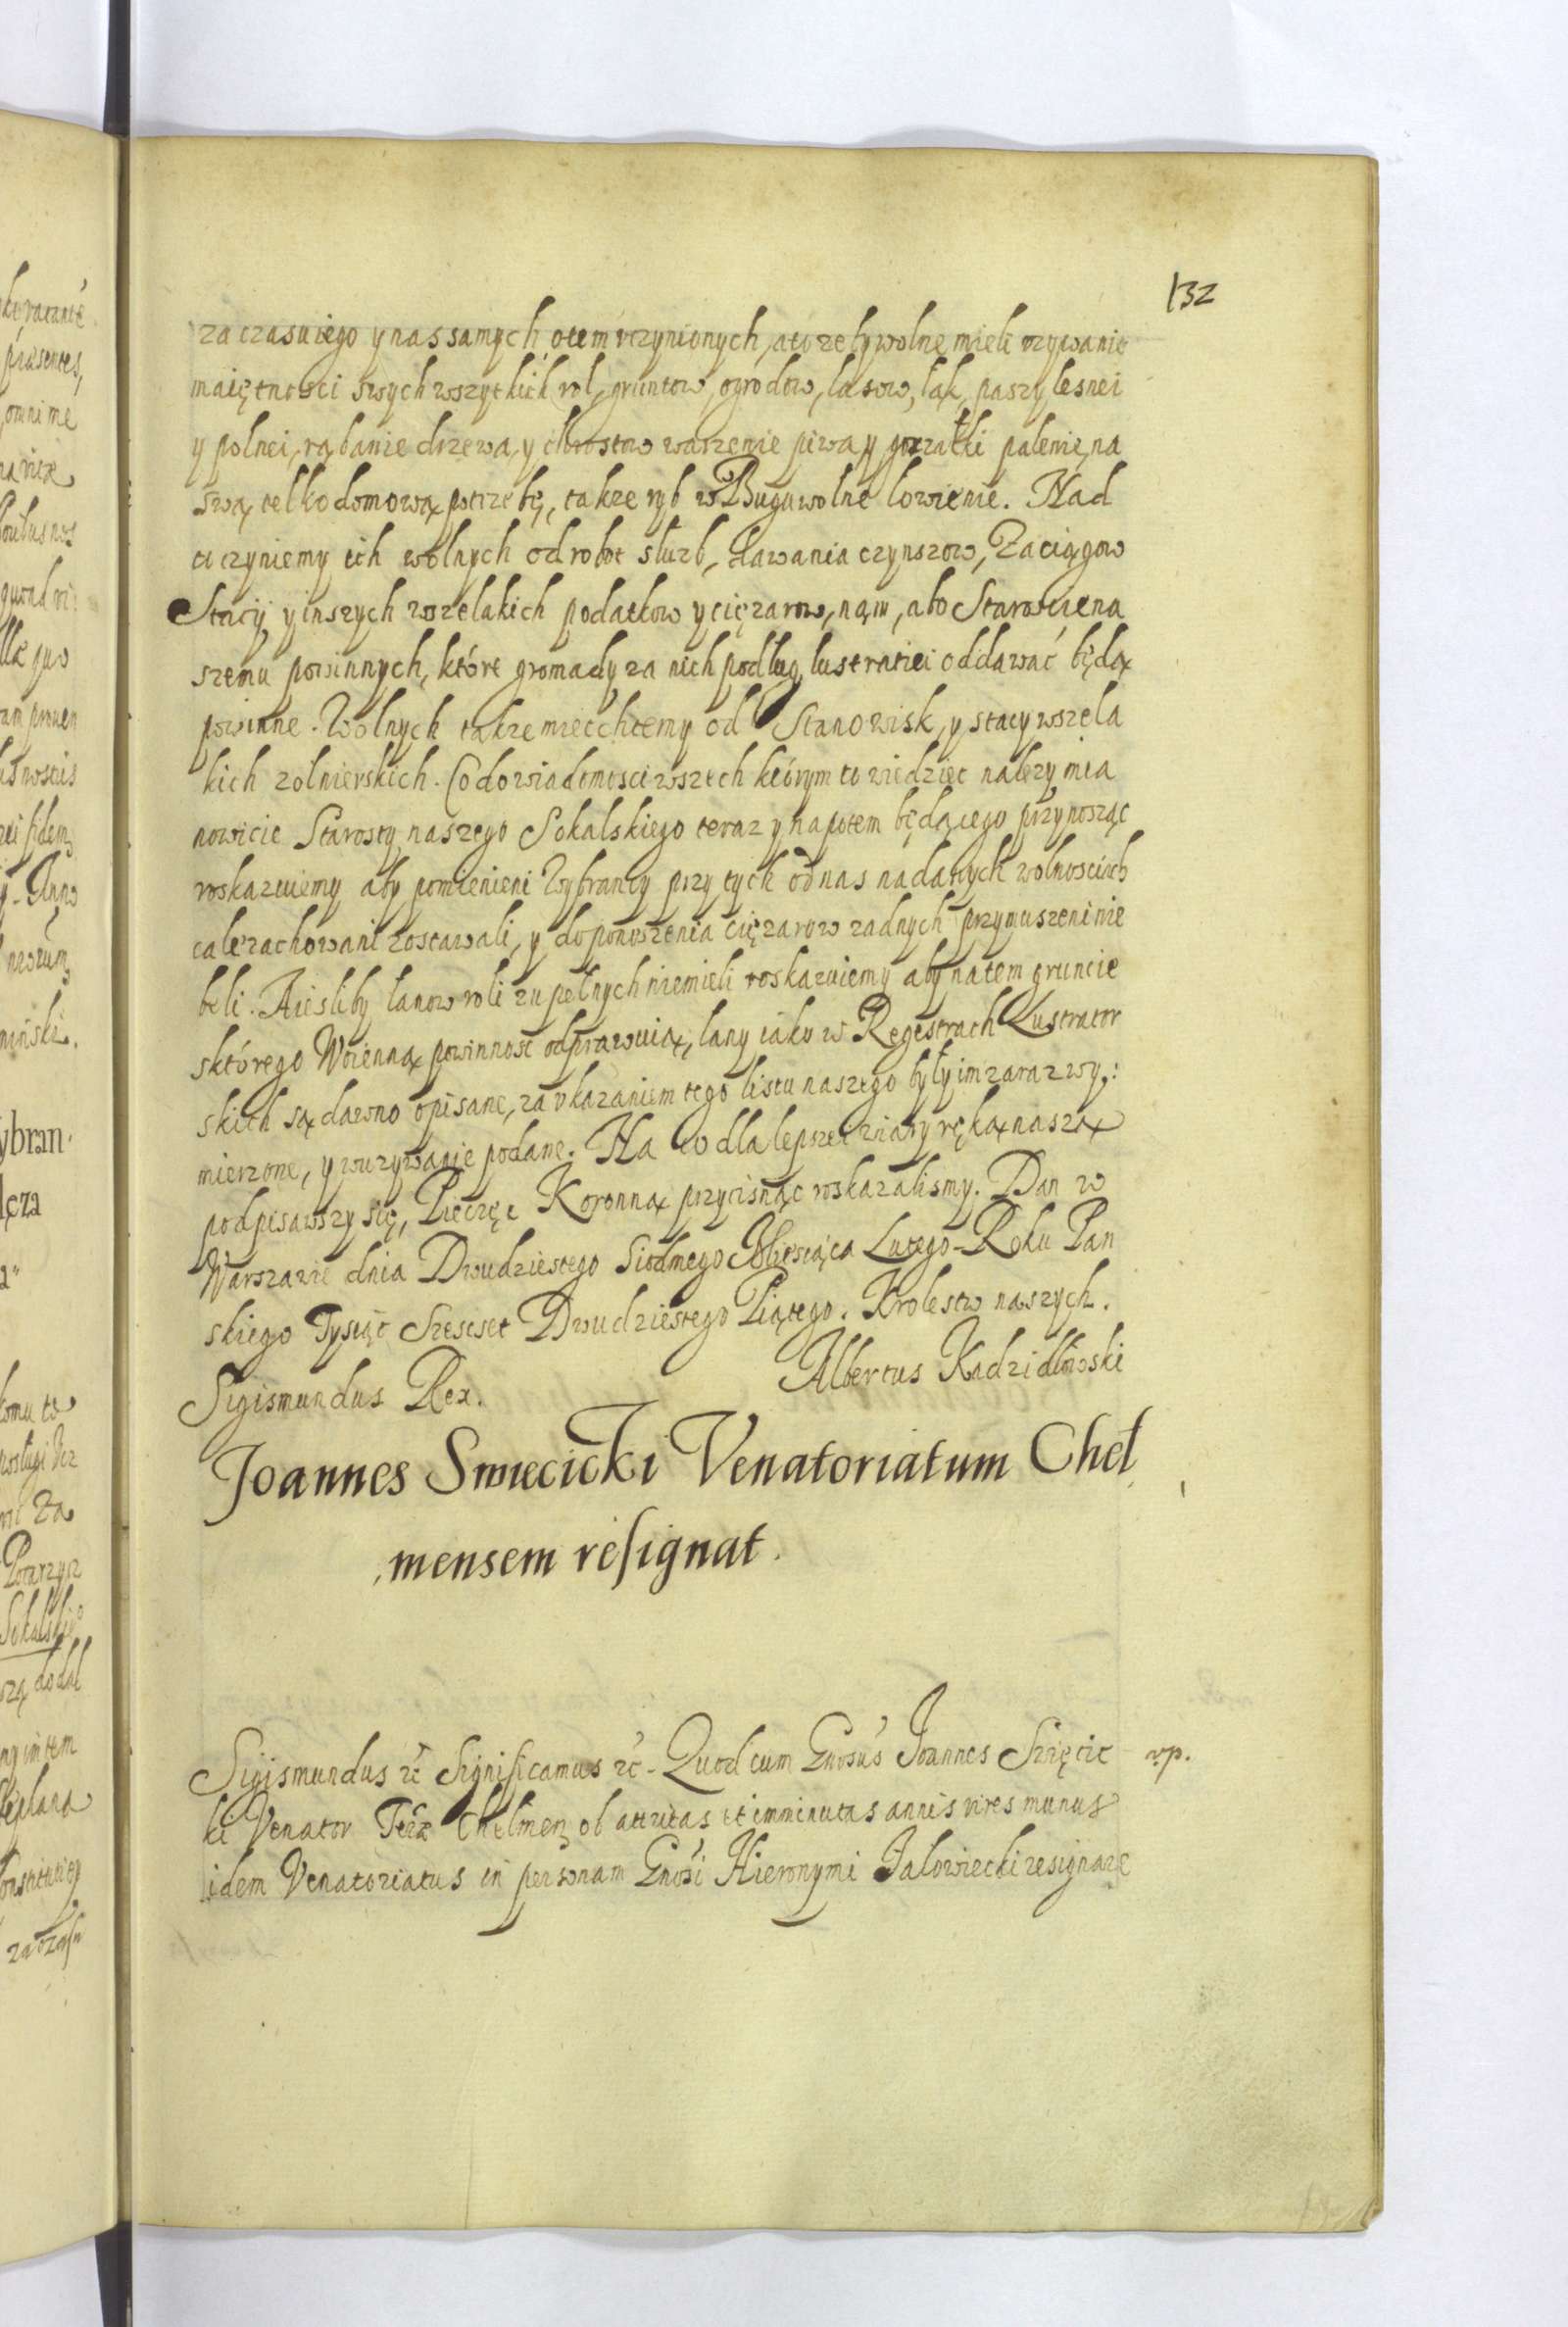 132
za czasu iego y nas samych otem vczynionych, ato zeby wolne mieli vzywanie
maiętnosci swych wszytkich rol, gruntow, ogrodow, lasow, łąk, paszy lesnei
y polnei, rąbanie drzewa, y chrostow warzenie piwa y gorzałki palenie, na
swą telko domową potrzebę, takze ryb w Bugu wolne lowienie. Nad
to czyniemy ich wolnych od robot służb, dawania czynszow, Zaciągow
Stacij y inszych wszelakich podatkow y ciężarow, nąm, abo Staroscie na
szemu powinnych, które gromady za nich podług lustratiei oddawać będą
powinne. Wolnych takze miec chcemy od Stanowisk, y stacy wszela
kich zolnierskich. Co do wiadomosci wszech którym to wiedziec nalezy mia
nowicie Starosty naszego Sokalskiego teraz y napotem będącego przynosząc
roskazuiemy aby pomienieni Wybrancy przy tych od nas nadanych wolnosciach
cale zachowani zostawali, y do ponoszenia ciężarow zadnych przymuszeni nie
beli. A iesliby lanow roli zupełnych niemieli roskazuiemy aby natem gruncie
sktórego Woienną powinnosc odprawuią, lany iako w Regestrach Lustrator
skich są dawno opisane, za vkazaniem tego listu naszego były im zaraz wy:
mierzone, y wuzywanie podane. Na co dla lepszei wiary ręką naszą
podpisawszy się, Pieczęc Koronną przycisnąc roskazalismy. Dan w
Warszawie dnia Dwudziestego Siodmego Miesiąca Lutego Roku Pan
skiego Tysiąc Szescset Dwudziestego Piątego. Krolestw naszych.
Sigismundus Rex. Albertus Kadzidłowski
Joannes Swiecicki Venatoriatum Chel
mensem resignat.
Sigismundus &c Significamus &c - Quod cum Gnosus Joannes Swięcic
vp.
ki Venator Terrae Chelmen ob attritas et imminutas annis vires munus
idem Venatoriatus in personam Gnosi Hieronymi Jalowiecki resignare